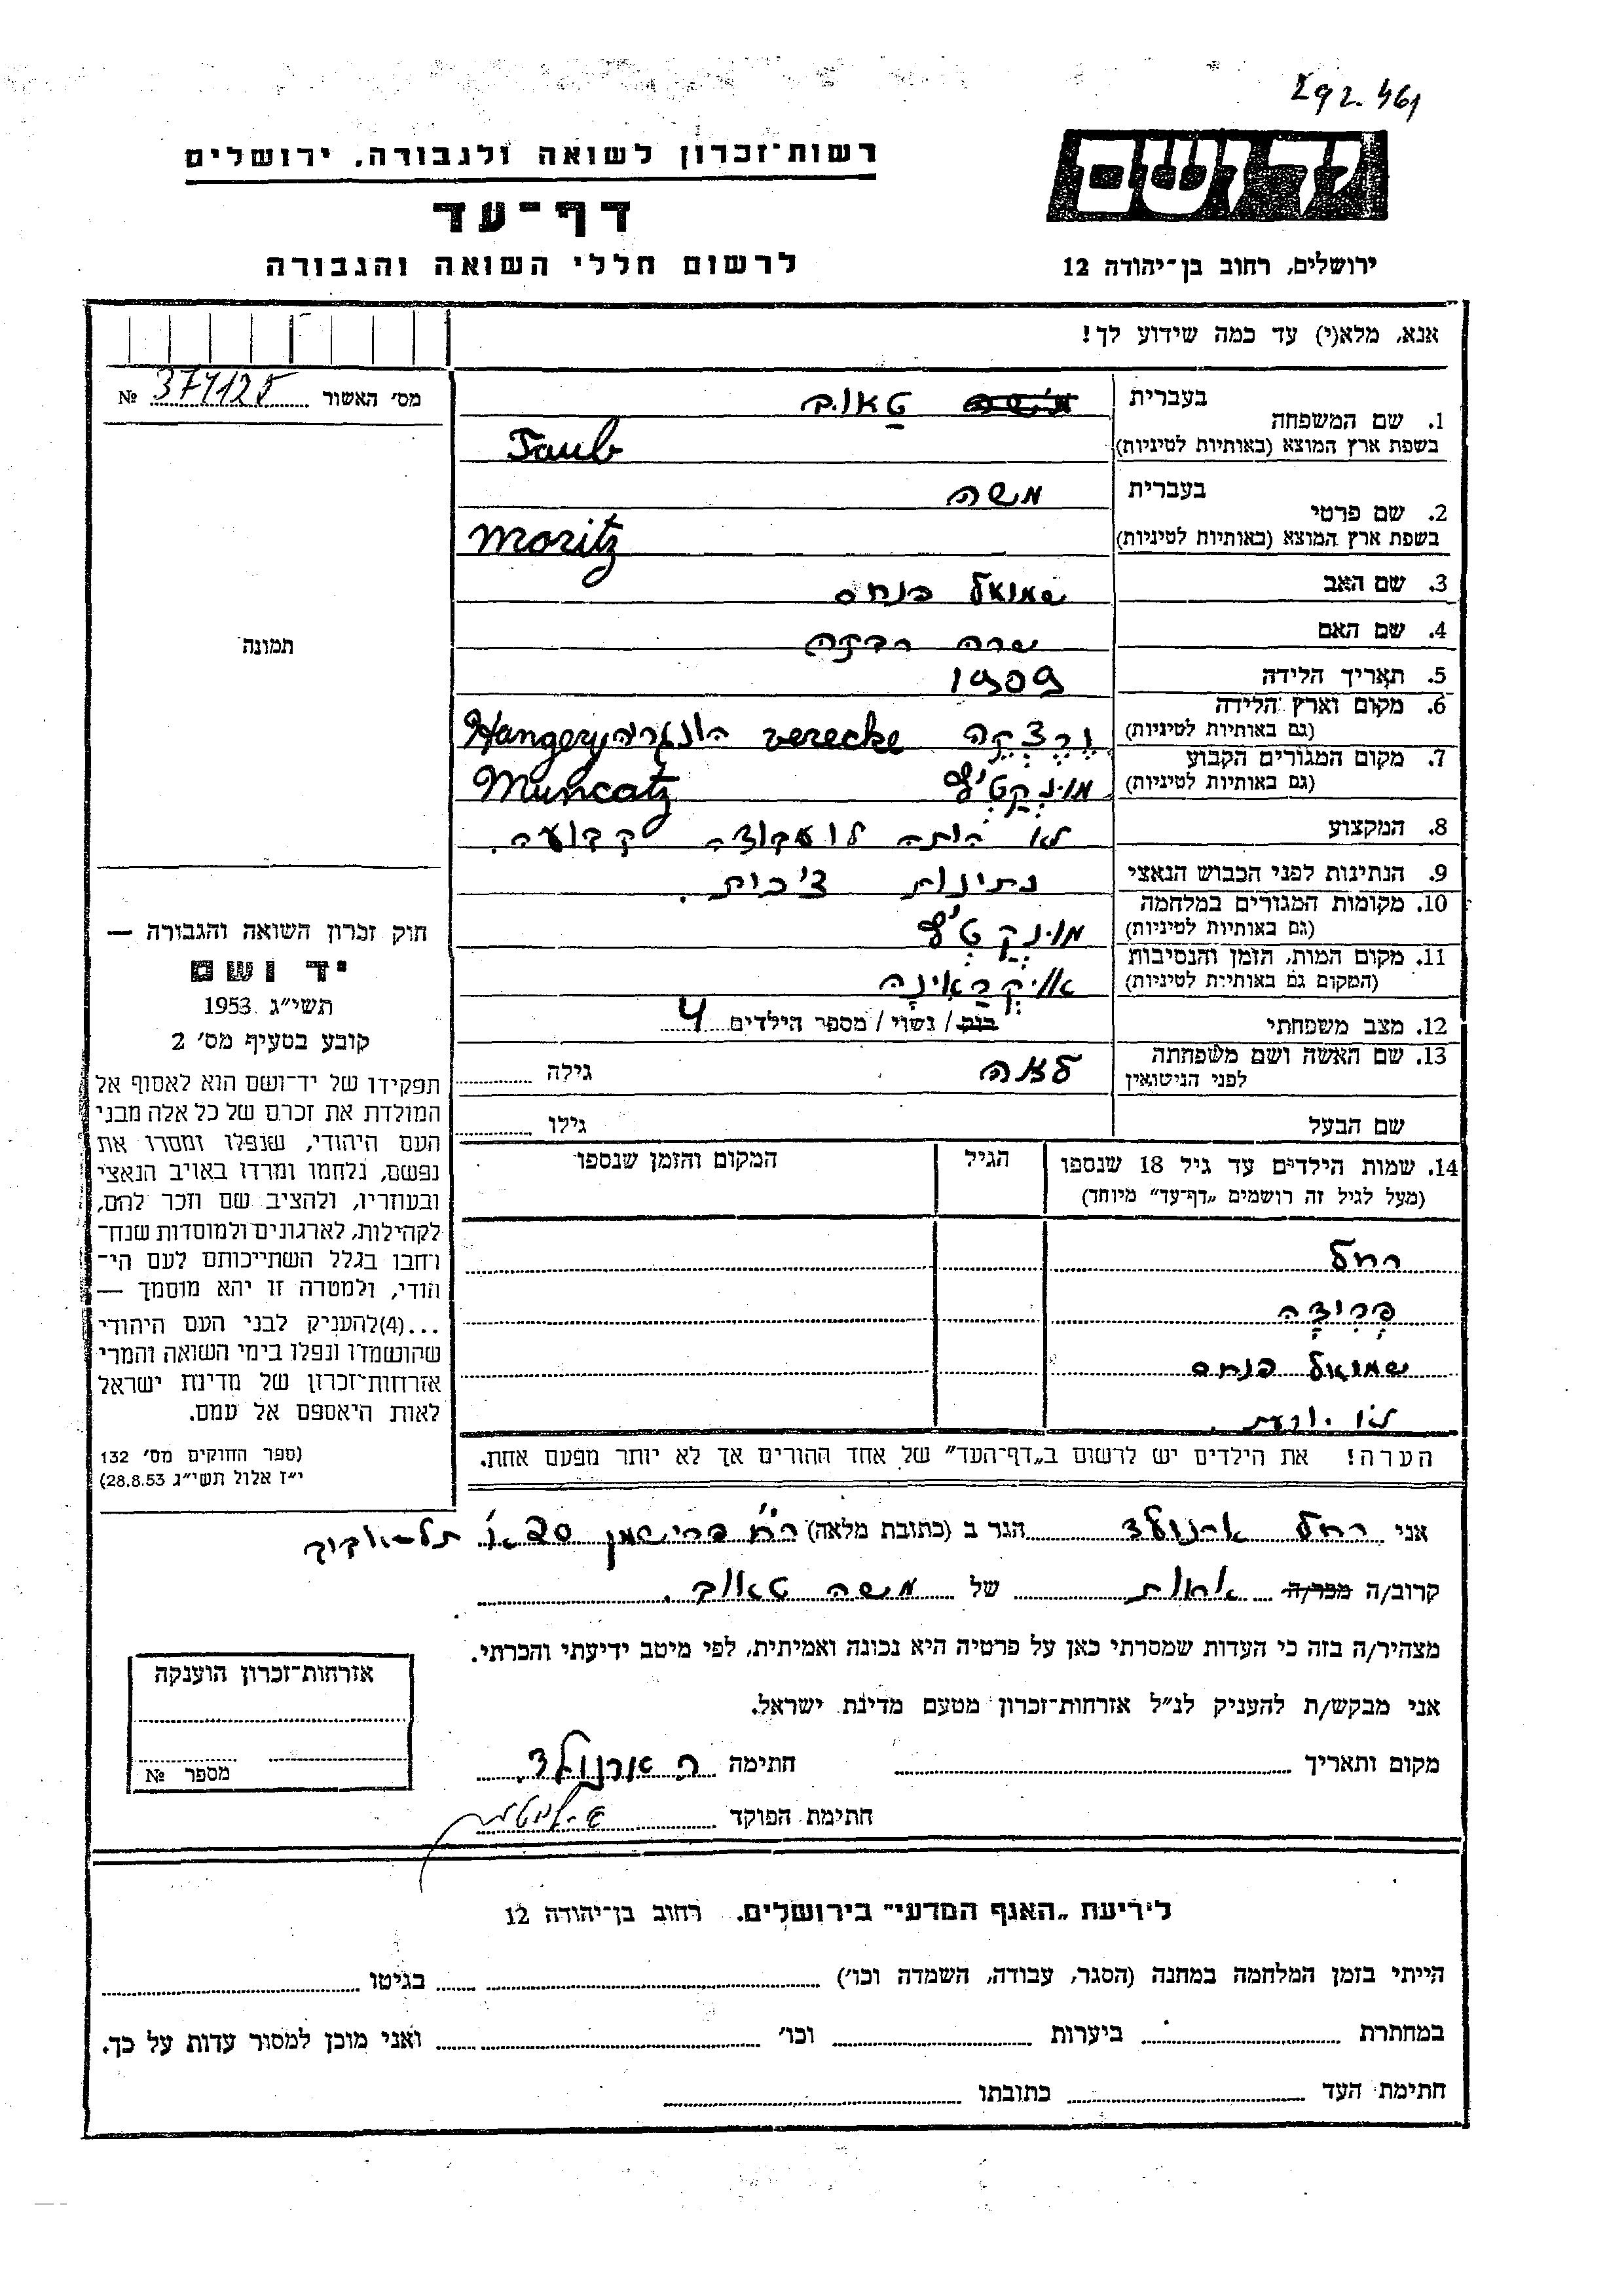 292.461
רשות־זכרון לשואה ולגבורה, ירושלים
דף־עד
לרשום חללי השואה והגבורה
יד ושם
ירושלים, רחוב בן־יהודה 12
אנא, מלא(י) עד כמה שידוע לך!
מס׳ האשור № 374125
תמונה
1. שם המשפחה
בעברית טאוב
בשפת ארץ המוצא (באותיות לטיניות) Taub
2. שם פרטי
בעברית משה
בשפת ארץ המוצא (באותיות לטיניות) Moritz
3. שם האב שמואל פנחס
4. שם האם שרה רבקה
5. תאריך הלידה 1909
6. מקום וארץ הלידה (גם באותיות לטיניות) וֶרֶצְקֶה verecke הונגריה Hangery
7. מקום המגורים הקבוע (גם באותיות לטיניות) מונקטש Muncatz
8. המקצוע לא היתה לו עבודה קבועה.
9. הנתינות לפני הכבוש הנאצי נתינות צ׳כית.
10. מקומות המגורים במלחמה (גם באותיות לטיניות) מונקטש
11. מקום המות, הזמן והנסיבות (המקום גם באותיות לטיניות) אוקראינה
12. מצב משפחתי רווק / נשוי / מספר הילדים 4
13. שם האשה ושם משפחתה לפני הנישואין לאה גילה
שם הבעל גילו
14. שמות הילדים עד גיל 18 שנספו (מעל לגיל זה רושמים „דף־עד” מיוחד) הגיל המקום והזמן שנספו
רחל
פריצה
שמואל פנחס
לא יודעת.
הערה! את הילדים יש לרשום ב„דף־העד” של אחד ההורים אך לא יותר מפעם אחת.
חוק זכרון השואה והגבורה —
יד ושם
תשי״ג 1953
קובע בסעיף מס׳ 2
תפקידו של יד־ושם הוא לאסוף אל
המולדת את זכרם של כל אלה מבני
העם היהודי, שנפלו ומסרו את
נפשם, נלחמו ומרדו באויב הנאצי
ובעוזריו, ולהציב שם וזכר להם,
לקהילות, לארגונים ולמוסדות שנח־
רחבו בגלל השתייכותם לעם הי־
הודי, ולמטרה זו יהא מוסמך —
...(4)להעניק לבני העם היהודי
שהושמדו ונפלו בימי השואה והמרי
אזרחות־זכרון של מדינת ישראל
לאות היאספם אל עמם.
(ספר החוקים מס׳ 132
י״ז אלול תשי״ג 28.8.53)
אני רחל ארנולד הגר ב (כתובת מלאה) תל־אביב
קרוב/ה מכר/ה אחות של משה טאוב.
מצהיר/ה בזה כי העדות שמסרתי כאן על פרטיה היא נכונה ואמיתית, לפי מיטב ידיעתי והכרתי.
אני מבקש/ת להעניק לנ״ל אזרחות־זכרון מטעם מדינת ישראל.
מקום ותאריך חתימה ר ארנולד
חתימת הפוקד
אזרחות־זכרון הוענקה
מספר №
לידיעת „האגף המדעי” בירושלים. רחוב בן־יהודה 12
הייתי בזמן המלחמה במחנה (הסגר, עבודה, השמדה וכו׳) בגיטו
במחתרת ביערות וכו׳ ואני מוכן למסור עדות על כך.
חתימת העד כתובתו